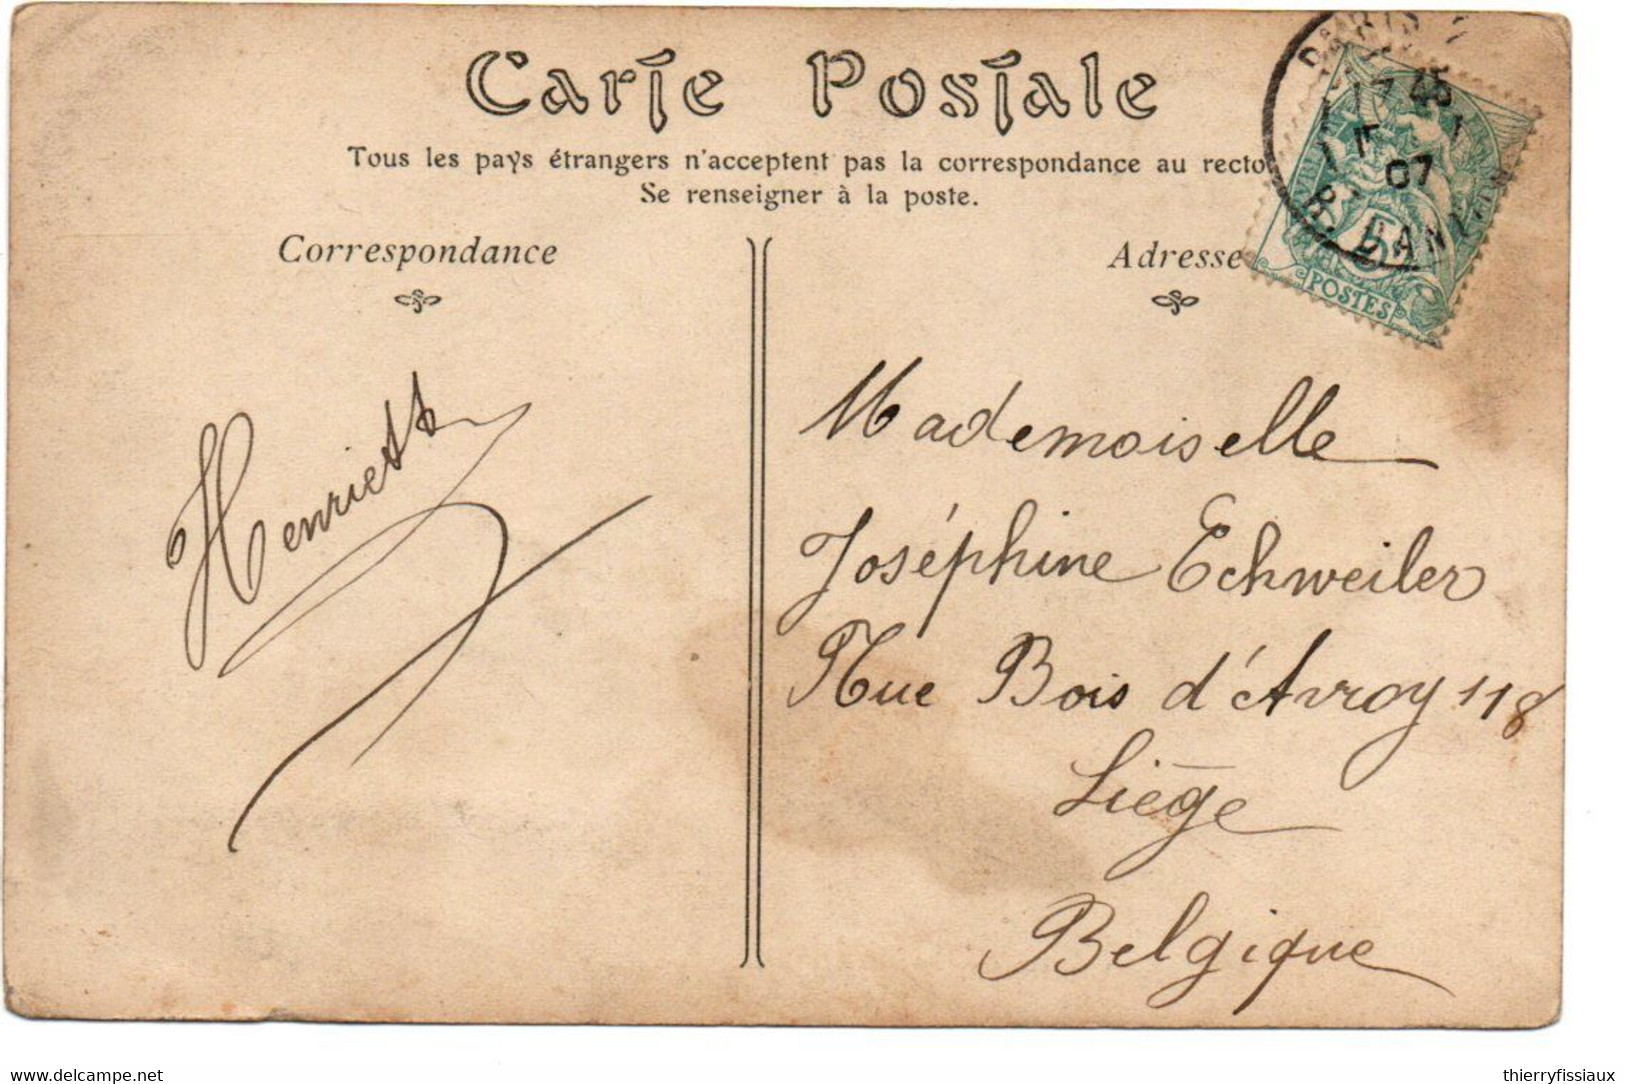 Carte Postale
Tous les pays étrangers n'acceptent pas la correspondance au recto
Se renseigner à la poste.
Correspondance
Adresse
PARIS
17 45
07
R. DAN
5
POSTES
Henriette
Mademoiselle
Joséphine Echweiler
Rue Bois d'Avroy 118
Liège
Belgique
www.delcampe.net
thierryfissiaux